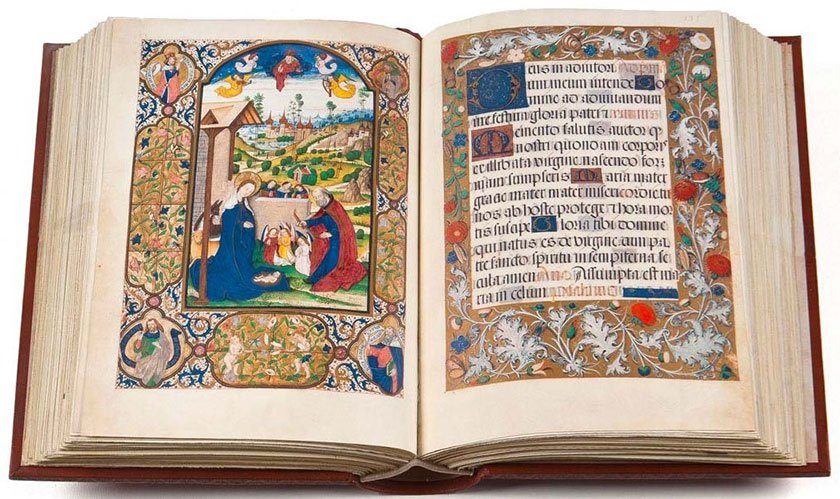 Deus in adiutori
um meum intende Do
mine ad adiuuandum
me festina gloria patri
Memento salutis auctor q
nostri quondam corporis
ex illibata virgine nascendo for
mam sumpseris Maria mater
gracie mater misericordie tu
nos ab hoste protege & hora mor
tis suscipe Gloria tibi domine
qui natus es de virgine cum pat
re sancto spiritu in sempiterna se
cula amen Assumpta est ma
ria in celum